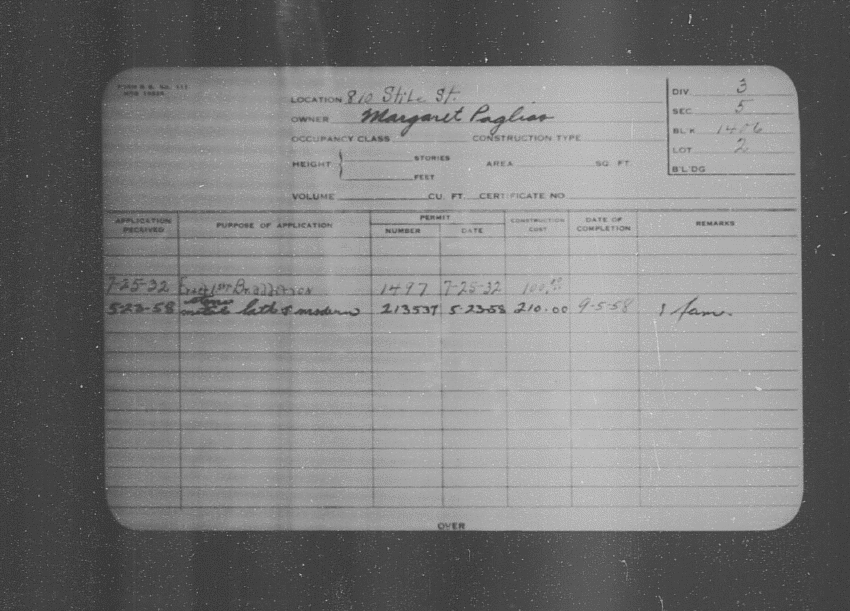 FORM B B. No. 111
LOCATION 810 Stile St.
OWNER Margaret Pagliao
OCCUPANCY CLASS CONSTRUCTION TYPE
HEIGHT STORIES FEET AREA SQ FT.
VOLUME CU. FT. CERTIFICATE NO
DIV 3
SEC 5
BL'K 1406
LOT 2
B'L'DG
APPLICATION RECEIVED PURPOSE OF APPLICATION PERMIT NUMBER DATE CONSTRUCTION COST DATE OF COMPLETION REMARKS
7-25-32 1497 7-25-32 100.00
stone
5-23-58 metal lath & modern 213537 5-23-58 210.00 9-5-58 1 fam.
OVER